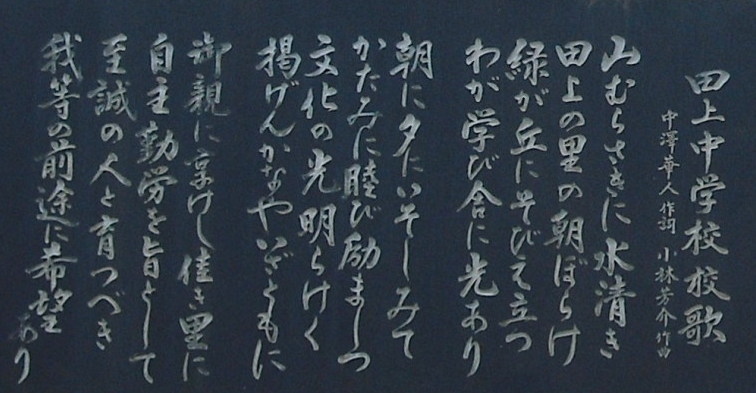 田上中学校校歌
中澤華人作詞 小林芳介作曲
山むらさきに水清き
田上の里の朝ぼらけ
緑が丘にそびえ立つ
わが学び舎に光あり
朝に夕にいそしみて
かたみに睦び励ましつ
文化の光明らけく
掲げんかなやいざともに
御親に享けし佳き里に
自主勤労を旨として
至誠の人と育つべき
我等の前途に希望あり